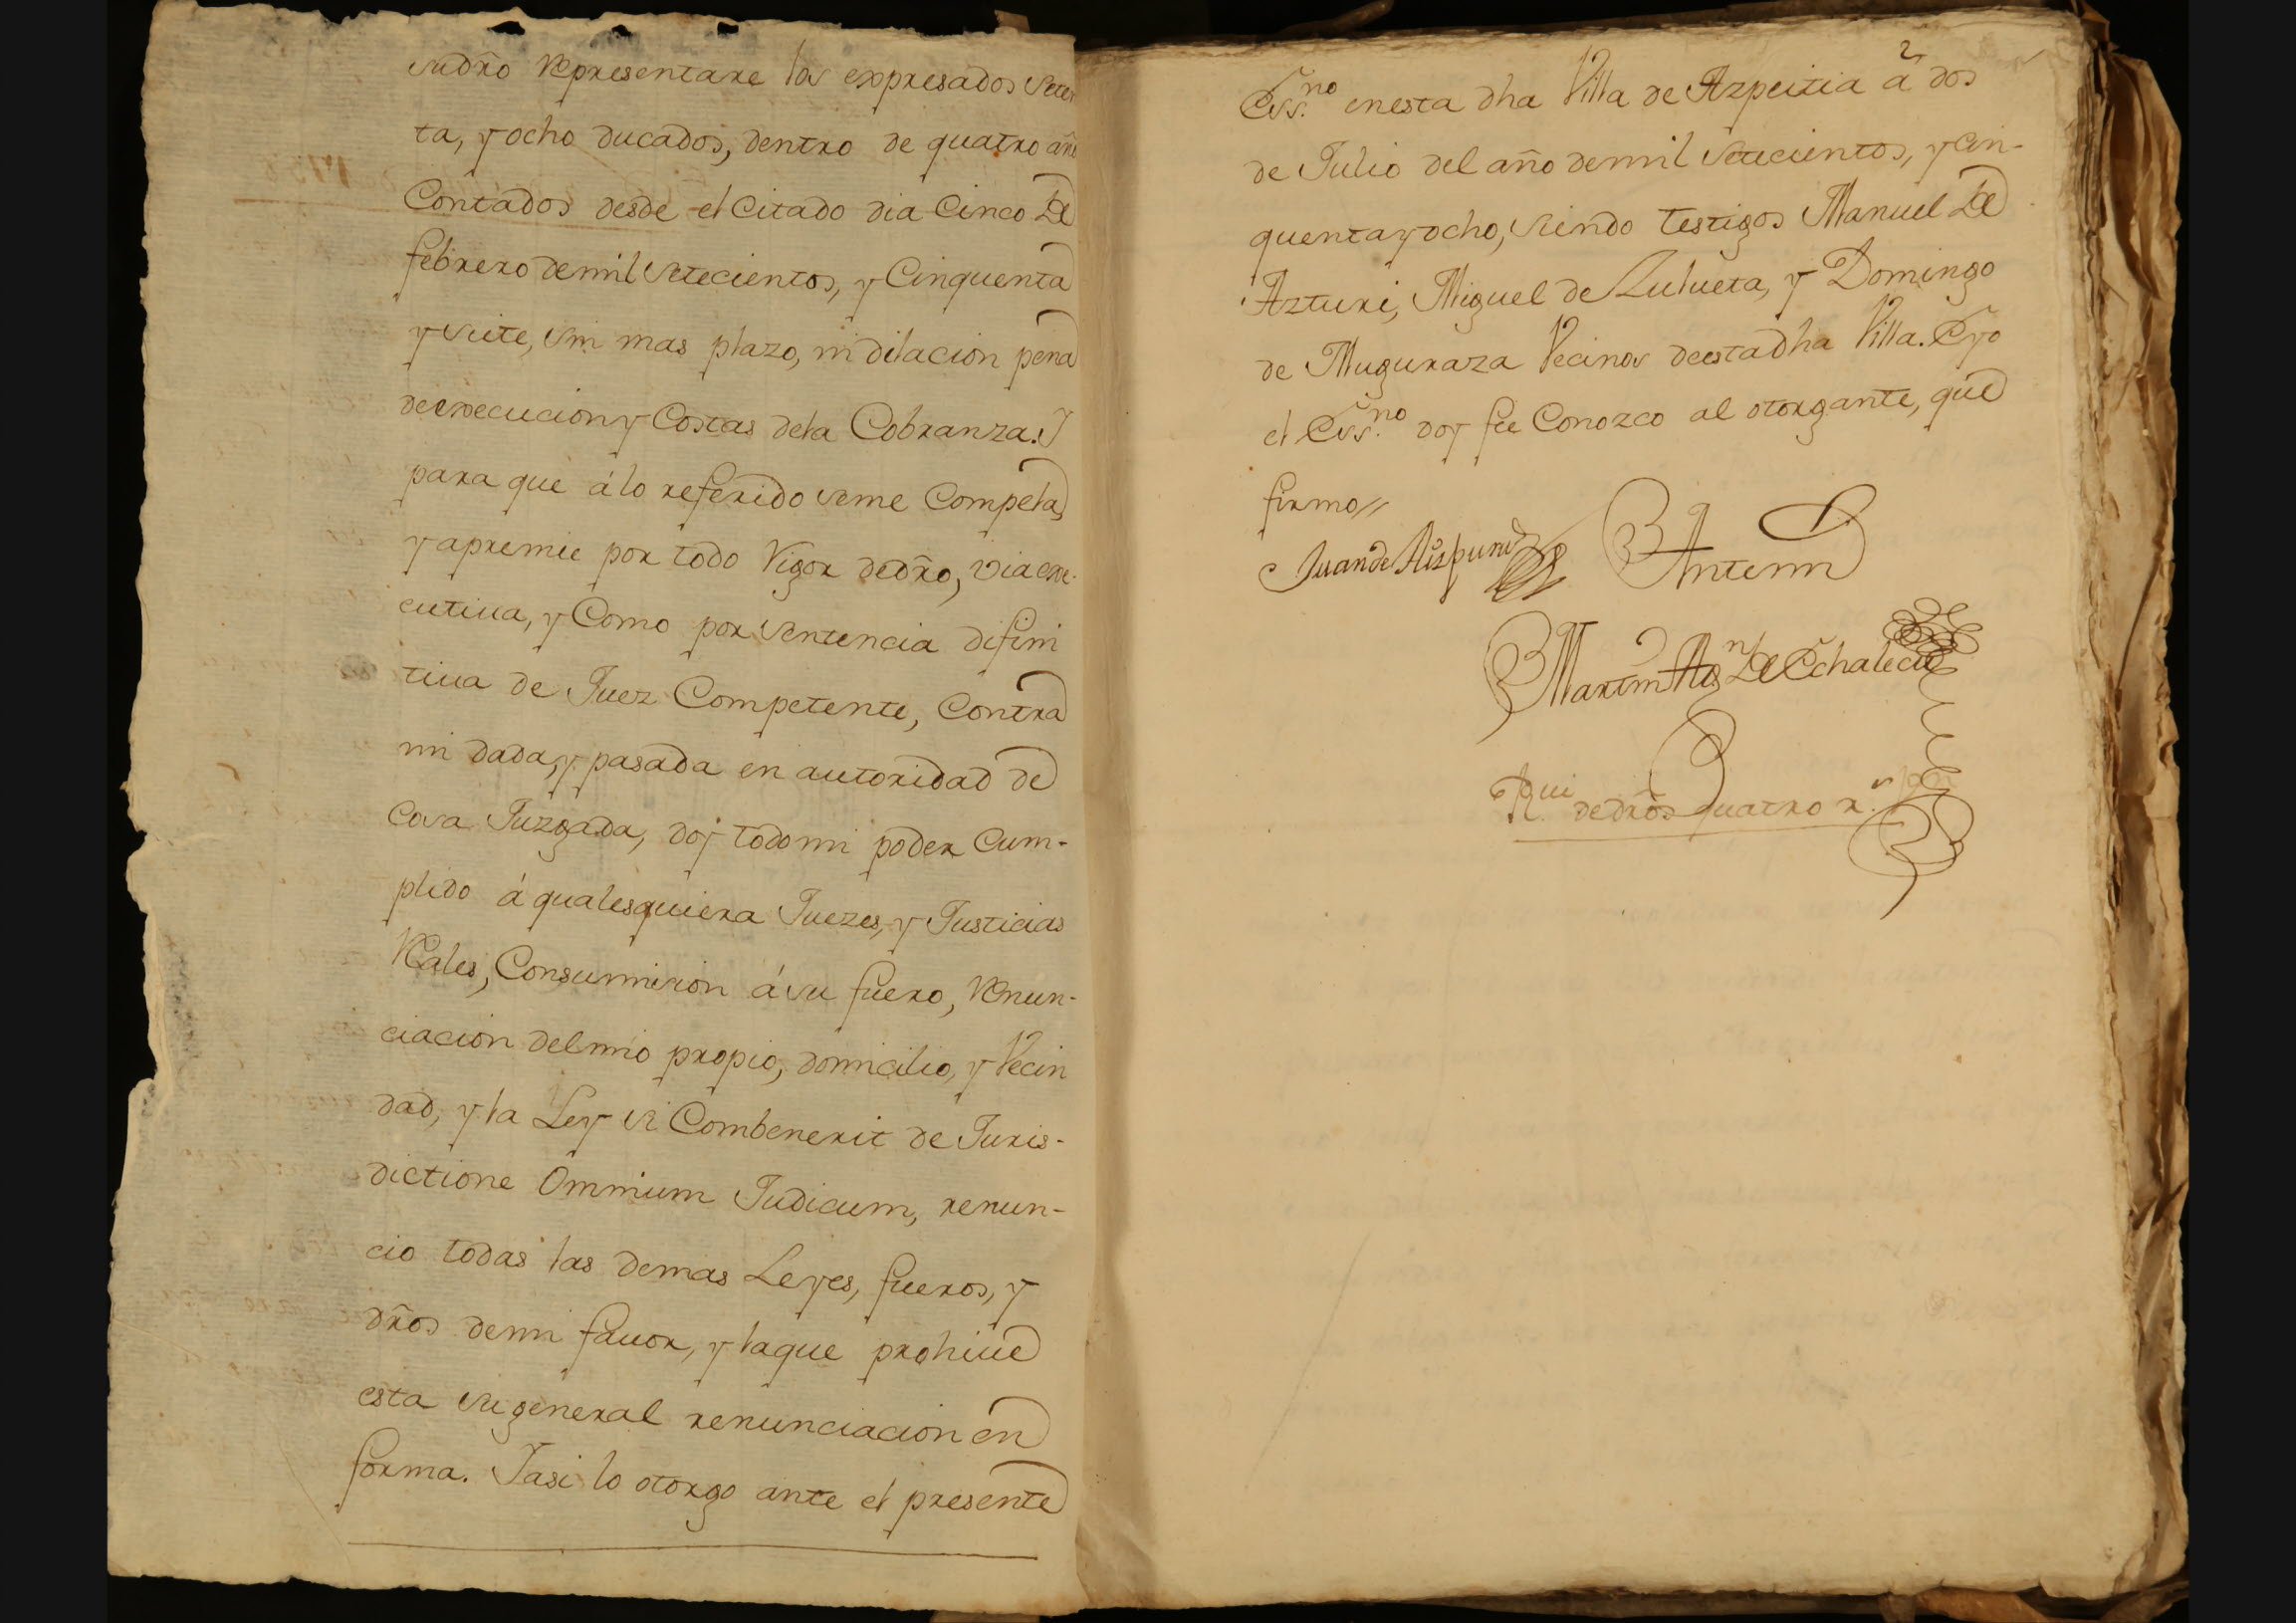 sudr̃o Representare los expresados seten
ta, y ocho ducados, dentro de quatro año
Contados desde el Citado dia Cinco de
febrero demil setecientos, y Cinquenta
y siete, sin mas plazo, ni dilacion pena
deexecucion y Costas dela Cobranza. Y
para que álo referido seme Compela,
y apremie por todo Vigor dedr̃o, via exe-
cutiua, y Como por sentencia difini
tiua de Juez Competente, Contra
mi dada, y pasada en autoridad de
Cosa Juzgada, doy todo mi poder Cum-
plido á qualesquiera Juezes, y Justicias
Reales, Consumision ásu fuero, Renun-
ciacion delmio propio, domicilio, y Vecin
dad, y la Ley si Combenerit de Juris-
dictione Ommium Judicum, renun-
cio todas las demas Leyes, fueros, y
dr̃os demi fauor, y laque prohiue
esta su general renunciacion en
forma. Y asi lo otorgo ante el presente
2
Ess.no enesta dha Villa de Azpeitia a dos
de Julio del año demil setecientos, y cin-
quentayocho, siendo testigos Manuel de
Azturi, Miguel de Zulueta, y Domingo
de Muguraza Vecinos deestadha Villa. E yo
el Ess.no doy fee Conozco al otorgante, que
firmo//
Juan de Aizpuru
Antemi
Martin Ag.n de Echalecu
dedr̃os quatro r.s